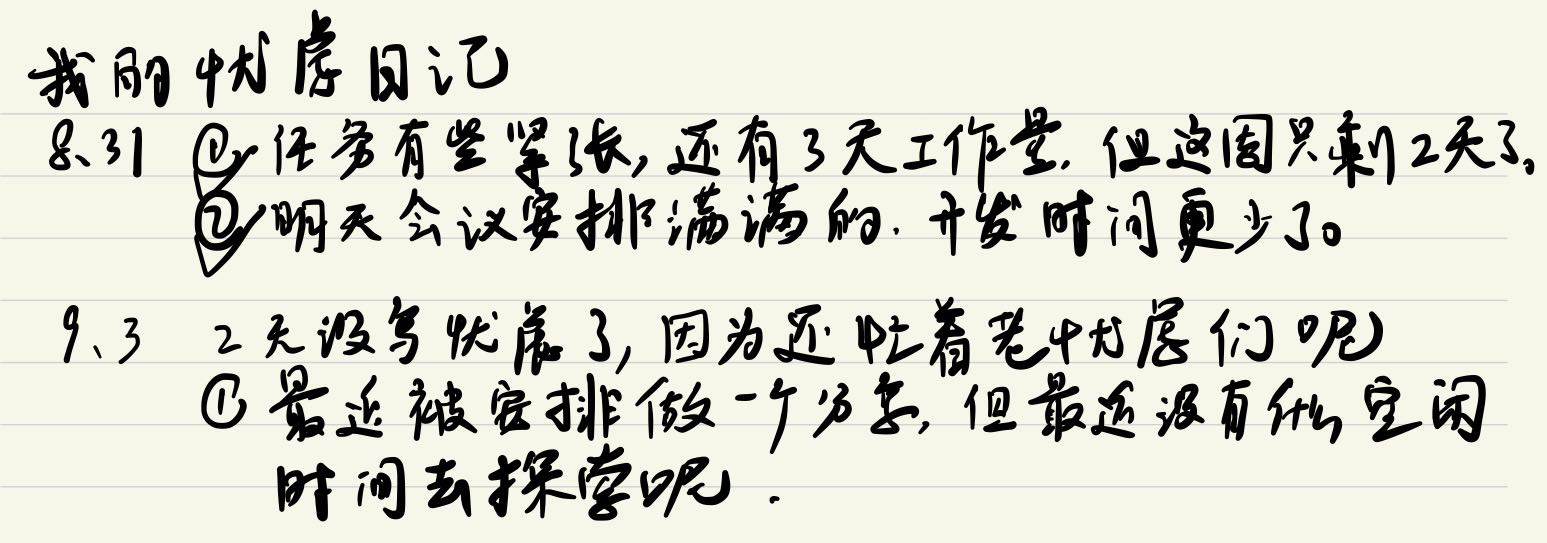 我的忧虑日记
8、31 ①任务有些紧张,还有3天工作量.但这周只剩2天了。
②明天会议安排满满的.开发时间更少了。
9、3 2天没写忧虑了,因为还忙着老忧虑们呢
①最近被安排做一个方案,但最近没有什么空闲
时间去探索呢.